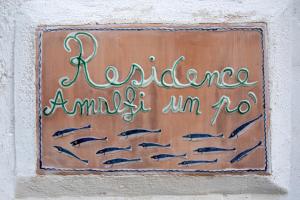 Residence
Amalfi un po'